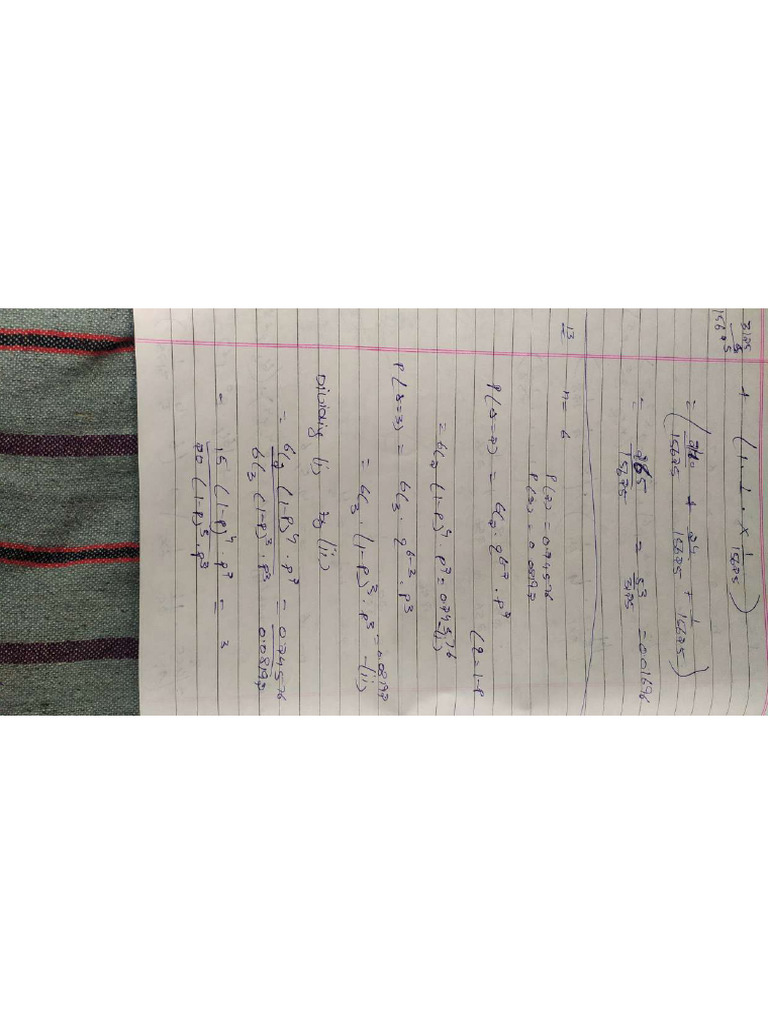 3125
15625
+ (1.1. × 1/15625)
= (240/15625 + 24/15625 + 1/15625)
= 265/15625 = 53/3125 = 0.01696
13 n = 6 P(2) = 0.24576
P(3) = 0.08192
P(x=2) = 6C2 . q^6-2 . p^2 (q = 1-p
= 6C2 (1-p)^4 . p^2 = 0.24576 -(i)
P(x=3) = 6C3 . q^6-3 . p^3
= 6C3 . (1-p)^3 . p^3 = 0.08192 -(ii)
Dividing (i) by (ii)
= 6C2 (1-p)^4 . p^2 / 6C3 (1-p)^3 . p^3 = 0.24576 / 0.08192
= 15 (1-p)^4 p^2 / 20 (1-p)^3 . p^3 = 3